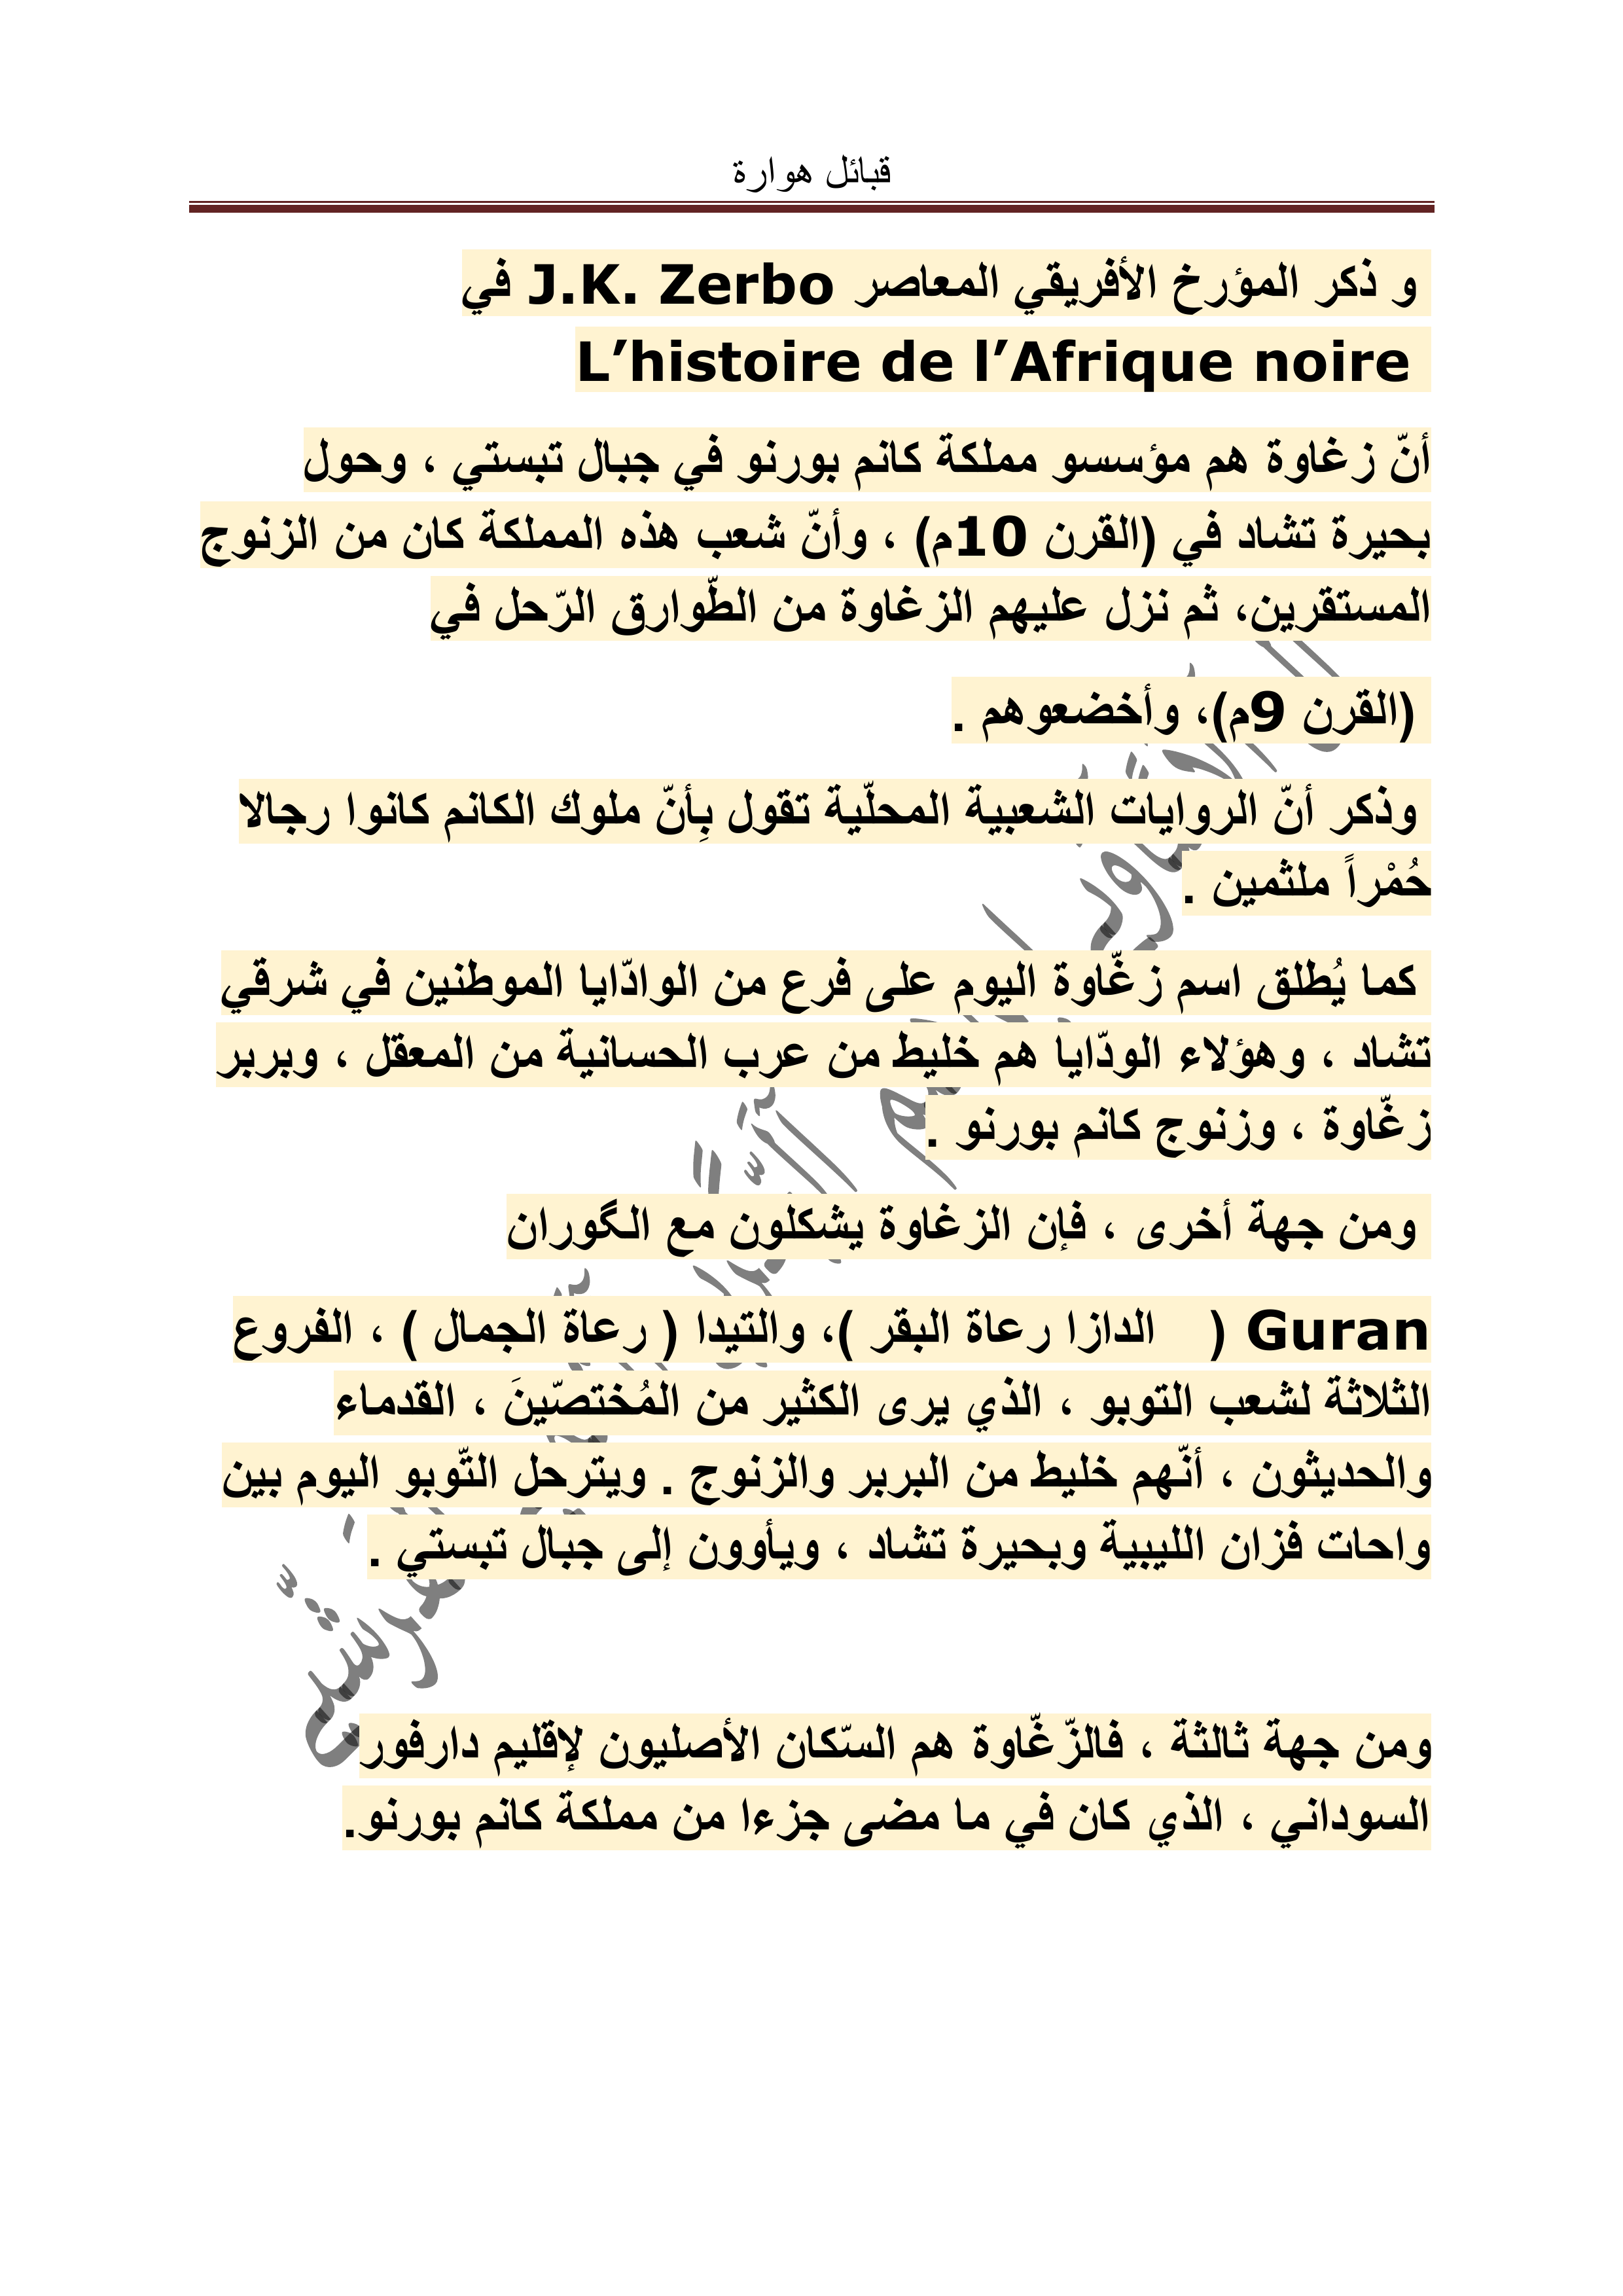 قبائل هوارة
و ذكر المؤرخ الأفريقي المعاصر J.K. Zerbo في
L’histoire de l’Afrique noire
أنّ زغاوة هم مؤسسو مملكة كانم بورنو في جبال تبستي ، وحول
بحيرة تشاد في (القرن 10م) ، وأنّ شعب هذه المملكة كان من الزنوج
المستقرين، ثم نزل عليهم الزغاوة من الطّوارق الرّحل في
(القرن 9م)، وأخضعوهم .
وذكر أنّ الروايات الشعبية المحلّية تقول بِأنّ ملوك الكانم كانوا رجالا
حُمْراً ملثمين .
كما يُطلق اسم زغّاوة اليوم على فرع من الوادّايا الموطنين في شرقي
تشاد ، وهؤلاء الودّايا هم خليط من عرب الحسانية من المعقل ، وبربر
زغّاوة ، وزنوج كانم بورنو .
ومن جهة أخرى ، فإن الزغاوة يشكلون مع الـگوران
Guran ( الدازا رعاة البقر )، والتيدا ( رعاة الجمال ) ، الفروع
الثلاثة لشعب التوبو ، الذي يرى الكثير من المُختصّينَ ، القدماء
والحديثون ، أنّهم خليط من البربر والزنوج . ويترحل التّوبو اليوم بين
واحات فزان الليبية وبحيرة تشاد ، ويأوون إلى جبال تبستي .
ومن جهة ثالثة ، فالزّغّاوة هم السّكان الأصليون لإقليم دارفور
السوداني ، الذي كان في ما مضى جزءا من مملكة كانم بورنو.